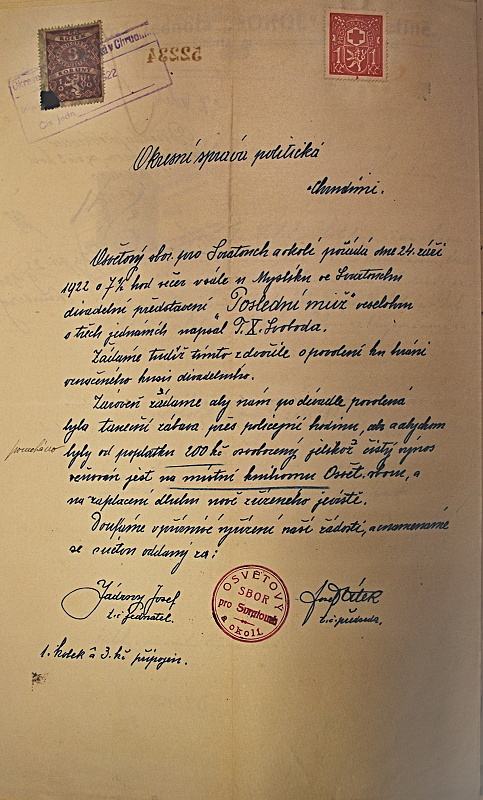 KOLEK
KORUNY
v Chrudimi
1922
52234
1 1
Okresní správa politická
Chrudimi.
Osvětový sbor pro Svratouch a okolí pořádá dne 24. září
1922 o 7½ hod večer v sále u Myslíků ve Svratouchu
divadelní představení „Poslední muž" veselohru
o třech jednáních napsal F. X. Svoboda.
Žádáme tudíž tímto zdvořile o povolení ku hraní
označeného kusu divadelního.
Zároveň žádáme aby nám po divadle povolena
byla taneční zábava přes policejní hodinu, a abychom
byly od poplatku 200 kč osvobozeny jelikož čistý výnos
věnován jest na místní knihovnu Osvět. sboru, a
na zaplacení dluhu nově zřízeného jeviště.
Doufáme v příznivé vyřízení naší žádosti, a znamenáme
se v úctou oddaný za:
Josef
t. č. jednatel.
OSVĚTOVÝ
SBOR
pro Svratouch
a okolí
Josef
t. č. předseda.
1. kolek á 3. kč připojen.